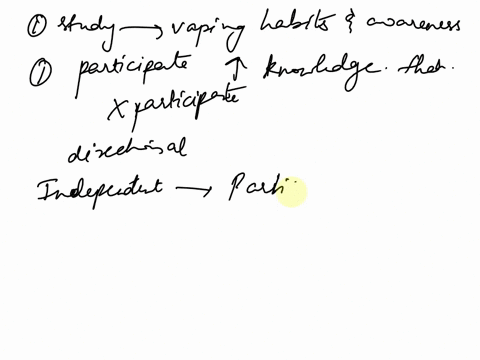 ① study → vaping habits & awareness
① participate ↑ knowledge. that.
X participate
directional
Independent → Parti